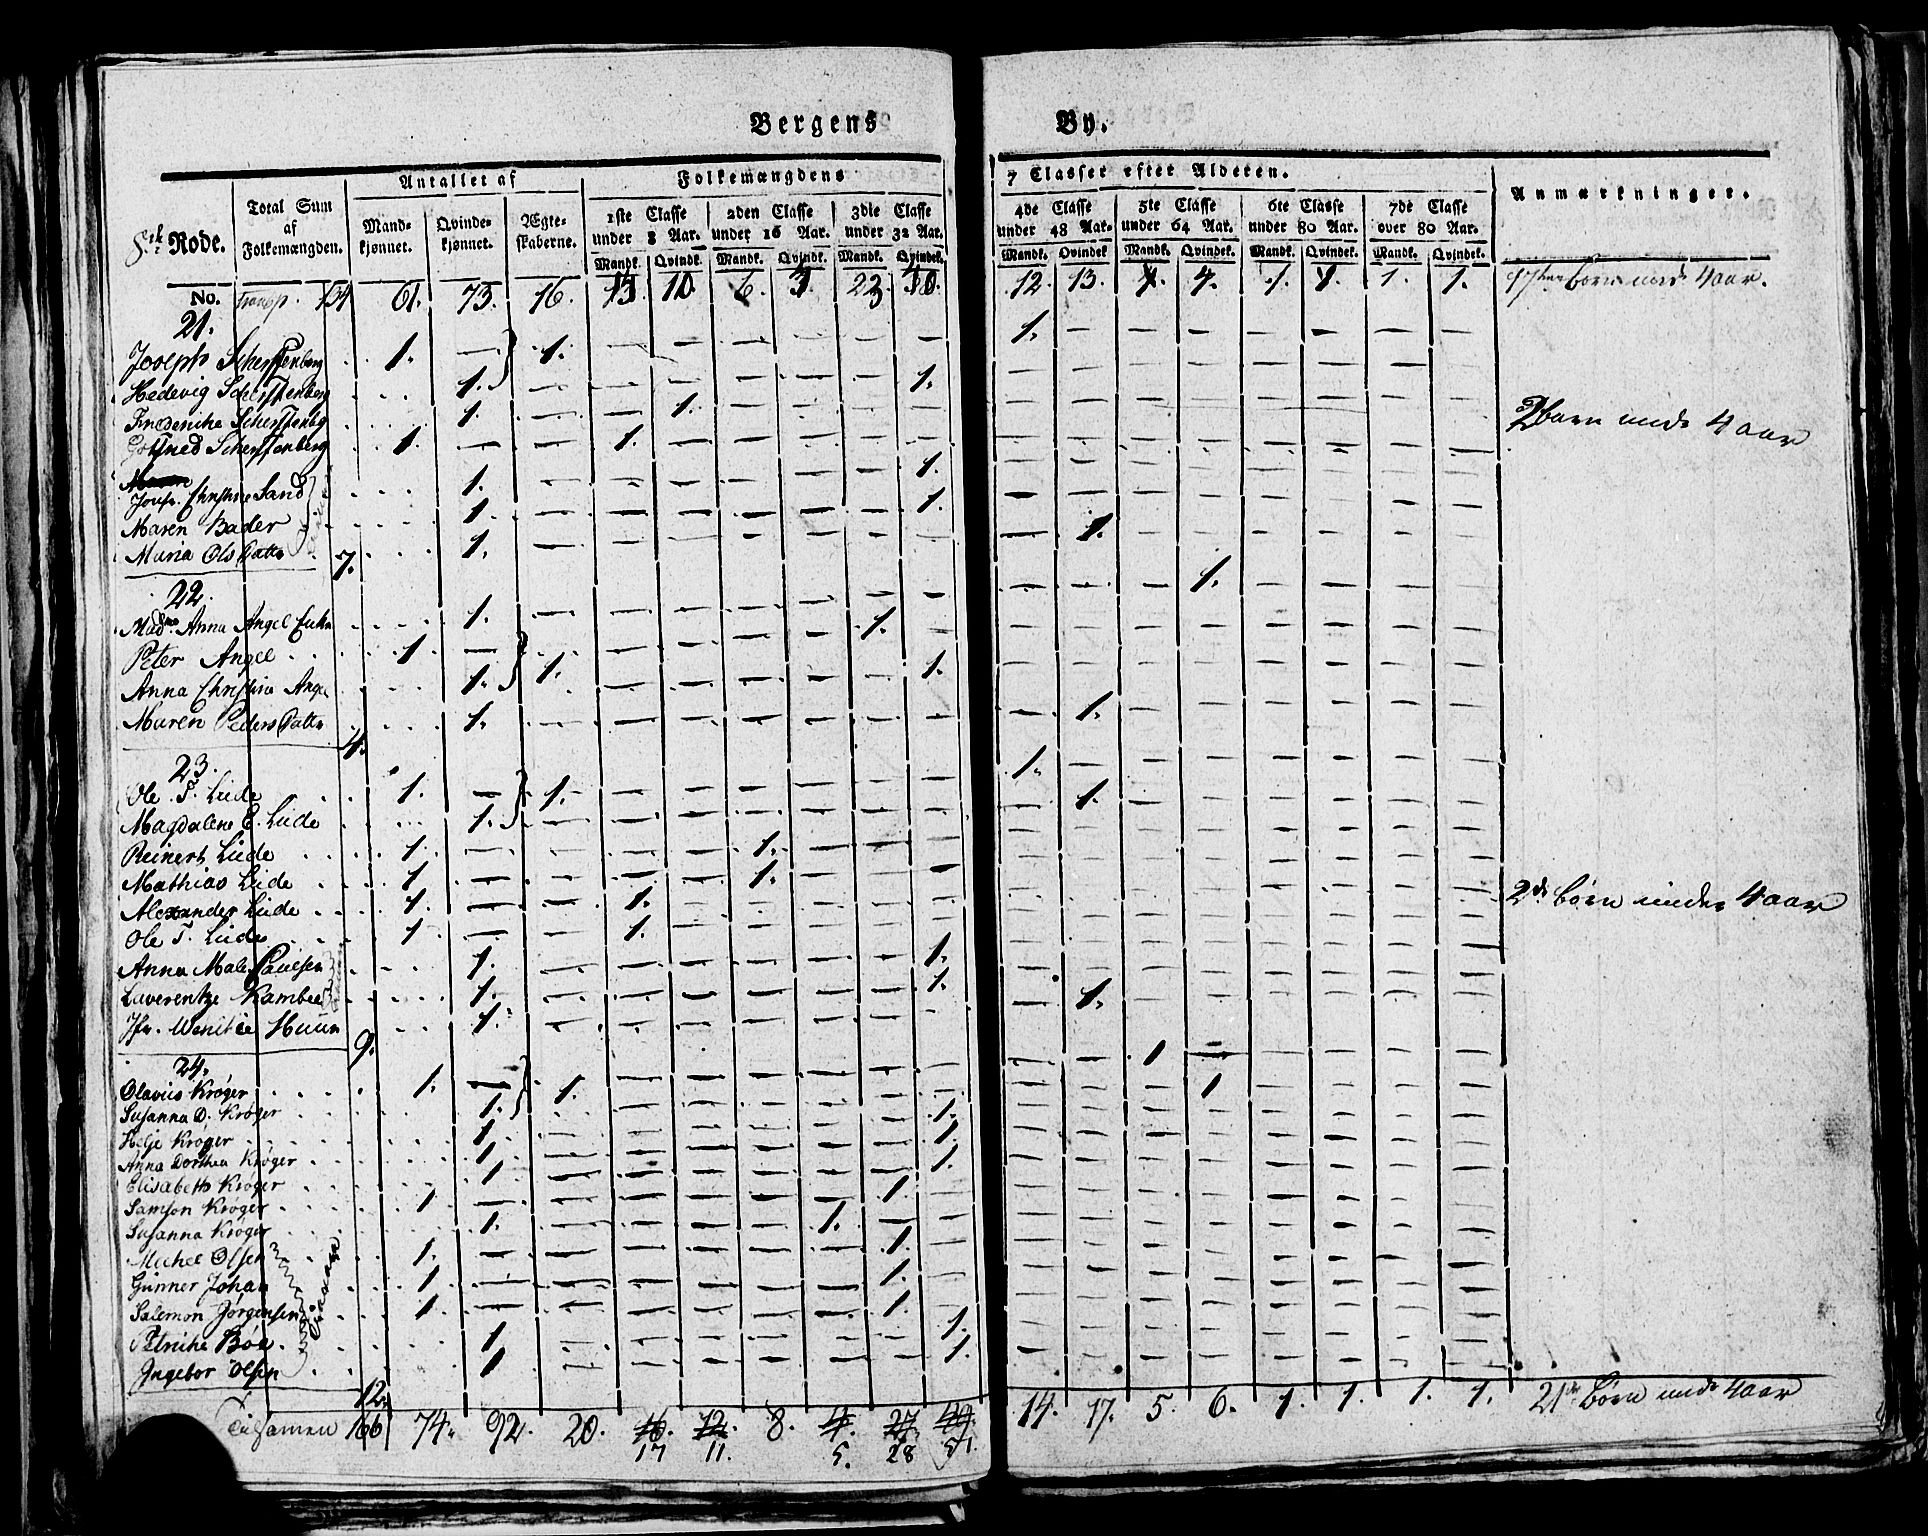 Bergens By.
Rode.
Total Sum af Folkemængden.
Antallet af
Mandkjønnet.
Qvindekjønnet.
Ægteskaberne.
Folkemængdens 7 Classer efter Alderen.
1ste Classe under 8 Aar.
2den Classe under 16 Aar.
3die Classe under 32 Aar.
4de Classe under 48 Aar.
5te Classe under 64 Aar.
6te Classe under 80 Aar.
7de Classe over 80 Aar.
Mandk. Qvindk. Mandk. Qvindk. Mandk. Qvindek. Mandk. Qvindek Mandk. Qvindek. Mandk. Qvindek. Mandk. Qvindek.
Anmærkninger.
No. transp. 134 61. 73. 16. 10 6. 12. 13. 4. 4. 1. 1. 1. 1. Børn under 4 aar.
21.
Joseph Scherffenberg 1. — 1. 1.
Hedevig Scherffenberg 1. 1.
Frederiche Scherffenbg 1. 1.
Gottfried Scherffenberg 1. 1. 2 børn under 4 aar
Jomfr. Christine Sand 1. 1.
Maren Bader 1. 1.
Maria Ols Datter 1. 1.
7.
22.
Mad. Anna Angel 1. 1.
Peter Angel 1. 1. 1.
Anna Christina Angel 1. 1.
Maren Peders Datter 1. 1.
4.
23.
Ole T. Lude 1. 1. 1.
Magdalene E. Lude 1. 1.
Reinert Lude 1. 1.
Mathias Lude 1. 1.
Alexander Lude 1. 1. 2de børn under 4 aar
Ole T. Lude 1. 1.
Anna Male Paulsen 1. 1.
Laverentze Kambee 1. 1.
Jfr. Wenitie Huun 1. 1.
9.
24.
Olavius Krøger 1. 1. 1
Susanna D. Krøger 1. 1
Helje Krøger 1. 1.
Anna Dorthea Krøger 1. 1.
Elisabeth Krøger 1. 1.
Samson Krøger 1. 1.
Susanna Krøger 1. 1.
Michel Olsen 1. 1.
Gunner Johan 1. 1.
Salemon Jørgensen 1. 1.
Petriche Boe 1. 1.
Ingebor Olsen 1. 1.
12.
Tilsamen 166 74. 92. 20. 16. 12. 8. 4. 27. 14. 17. 5. 6. 1. 1. 1. 1. 21 Børn under 4 aar
17 11. 5. 28 51.